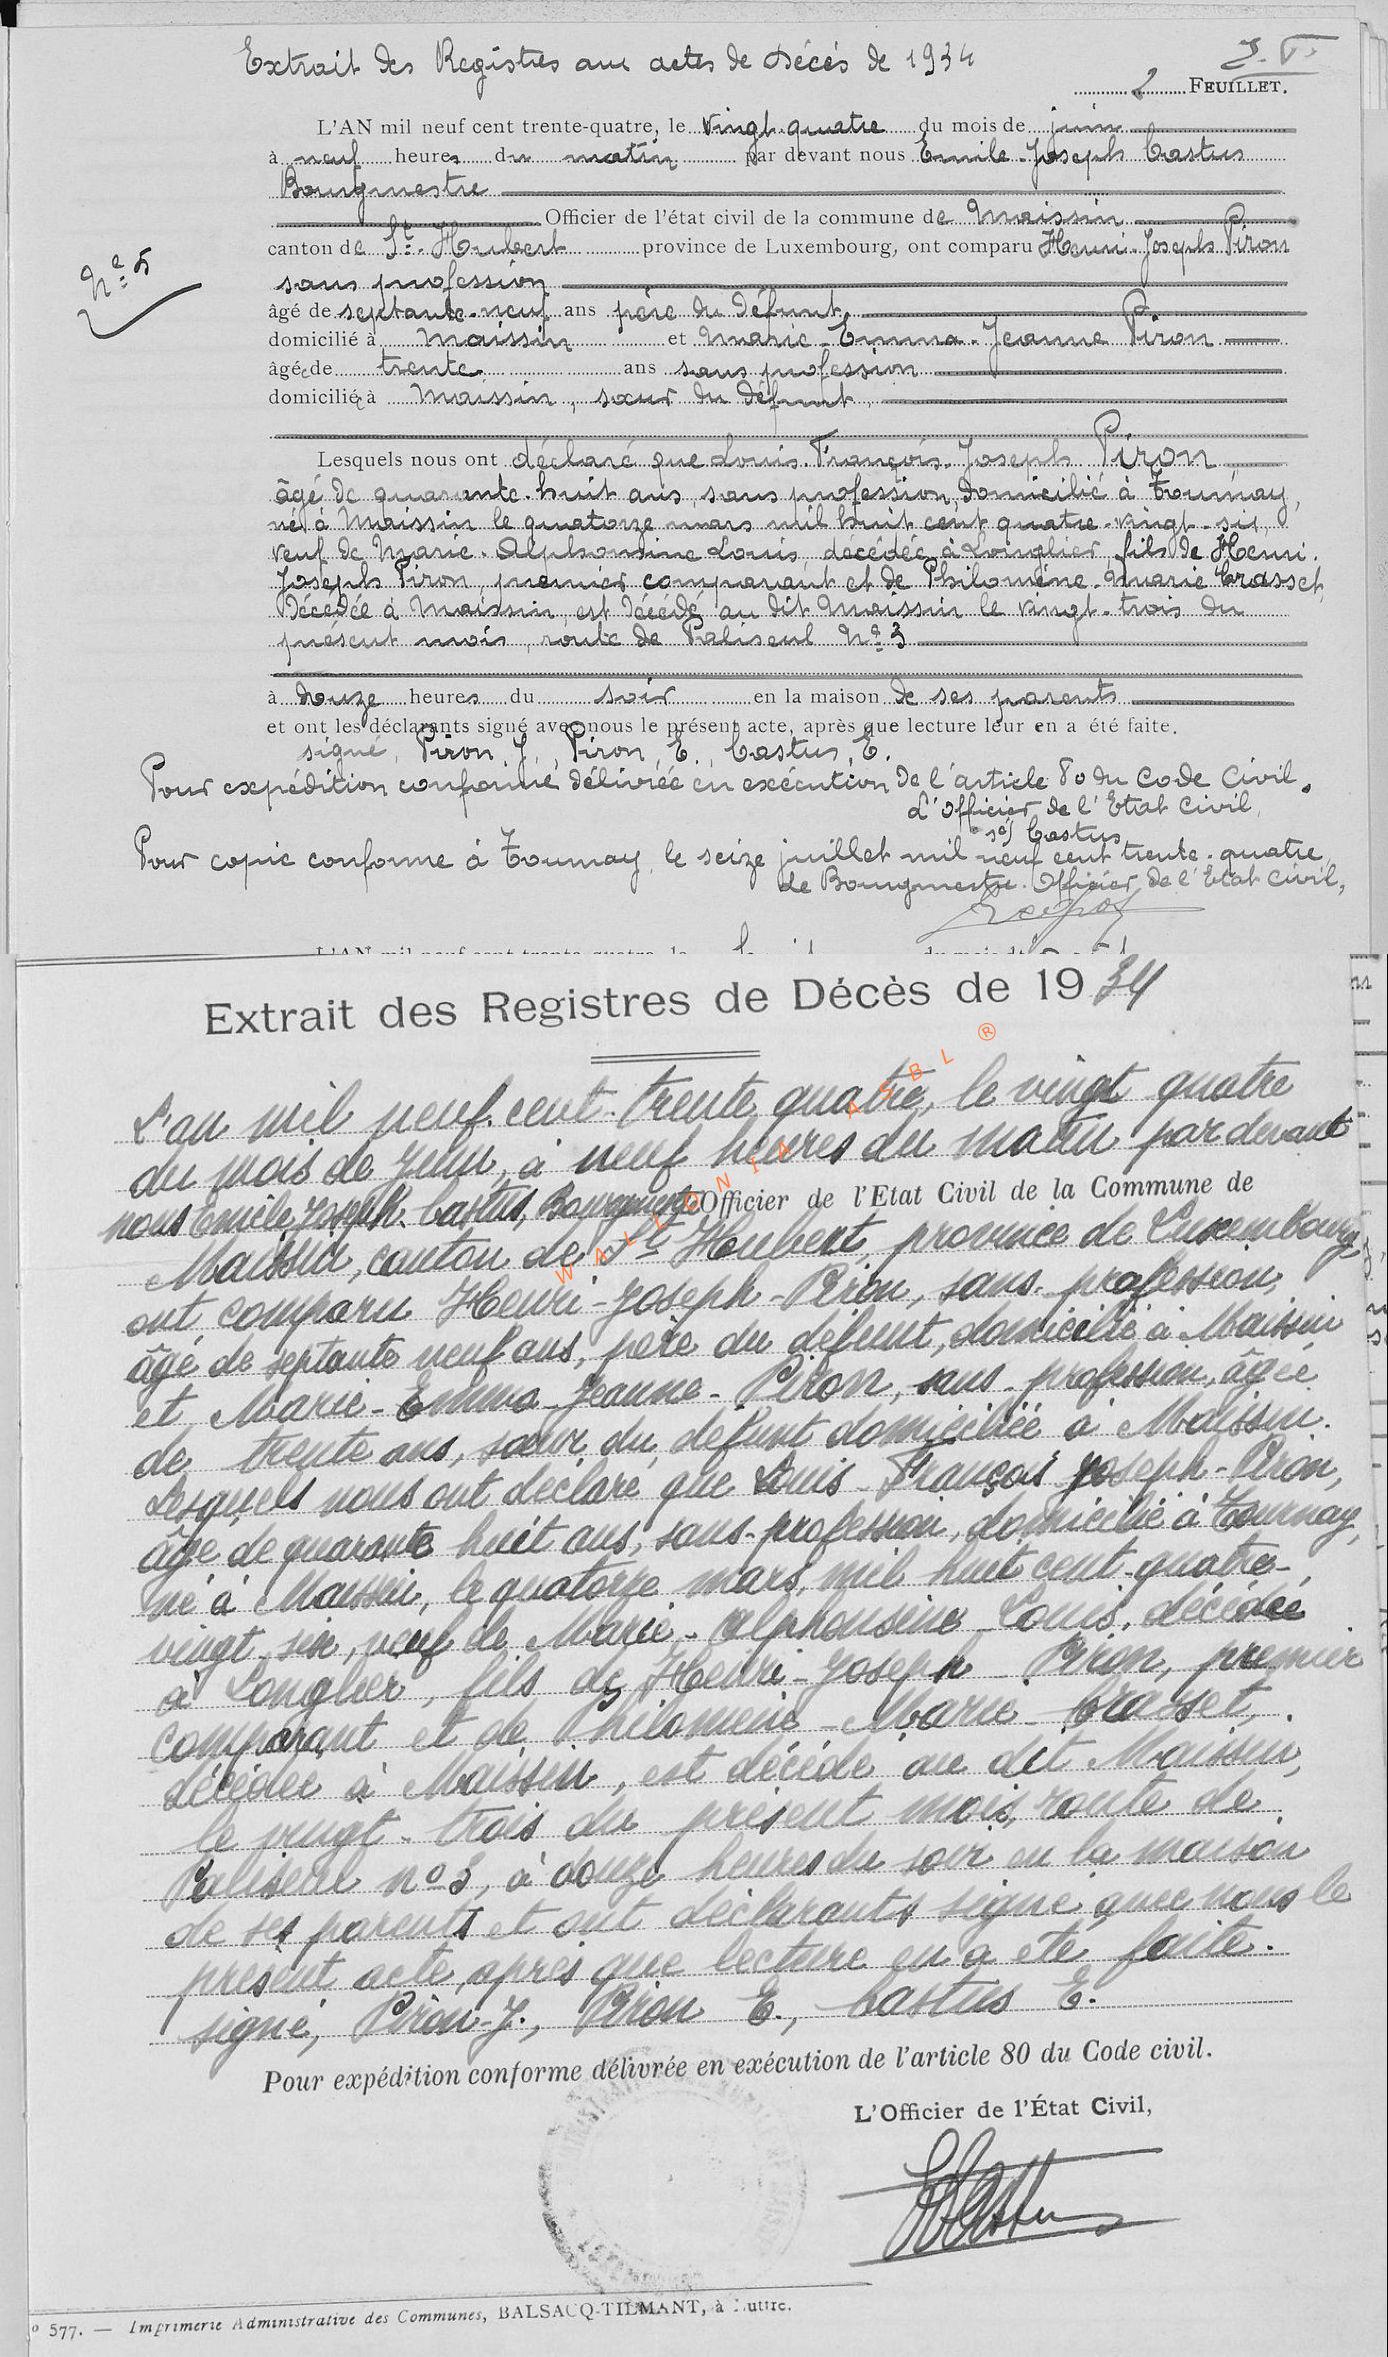 Extrait des Registres aux actes de Décès de 1934
2 FEUILLET.
L'AN mil neuf cent trente-quatre, le vingt-quatre du mois de juin
à neuf heures du matin par devant nous Emile-Joseph Castus
Bourgmestre
Officier de l'état civil de la commune de Maissin
canton de St-Hubert province de Luxembourg, ont comparu Henri-Joseph Piron
N° 5
sans profession
âgé de septante-neuf ans père du défunt,
domicilié à Maissin et Marie-Emma-Jeanne Piron
âgée de trente ans sans profession
domiciliée à Maissin, sœur du défunt,
Lesquels nous ont déclaré que Louis-François-Joseph Piron
âgé de quarante-huit ans, sans profession, domicilié à Tournay,
né à Maissin le quatorze mars mil huit cent quatre-vingt-six,
veuf de Marie-Alphonsine Louis, décédée à Longlier fils de Henri-
Joseph Piron, premier comparant et de Philomène-Marie Crasset,
décédée à Maissin, est décédé au dit Maissin le vingt-trois du
présent mois, route de Paliseul N° 3
à douze heures du soir en la maison de ses parents
et ont les déclarants signé avec nous le présent acte, après que lecture leur en a été faite.
signé, Piron J., Piron E., Castus, E.
Pour expédition conforme délivrée en exécution de l'article 80 du Code Civil.
L'Officier de l'Etat Civil,
sé) Castus
Pour copie conforme à Tournay, le seize juillet mil neuf cent trente-quatre,
Le Bourgmestre. Officier de l'Etat Civil,
L'AN mil neuf cent trente-quatre, le
Extrait des Registres de Décès de 1934
L'an mil neuf cent trente quatre, le vingt quatre
du mois de juin, à neuf heures du matin par devant
nous Emile Joseph Castus, Bourgmestre Officier de l'Etat Civil de la Commune de
Maissin, canton de St Hubert, province de Luxembourg,
ont comparu Henri-Joseph-Piron, sans profession,
âgé de septante neuf ans, père du défunt, domicilié à Maissin
et Marie-Emma-Jeanne-Piron, sans profession, âgée
de trente ans, sœur du défunt domiciliée à Maissin.
Lesquels nous ont déclaré que Louis-François Joseph-Piron,
âgé de quarante huit ans, sans-profession, domicilié à Tournay,
né à Maissin, le quatorze mars, mil huit cent quatre-
vingt-six, veuf de Marie-Alphonsine Louis, décédée
à Longlier, fils de Henri-Joseph Piron, premier
comparant et de Philomène-Marie-Crasset,
décédée à Maissin, est décédé au dit Maissin,
le vingt-trois du présent mois, route de
Paliseul n° 3, à douze heures du soir en la maison
de ses parents et ont déclarants signé avec nous le
présent acte, après que lecture en a été faite.
signé, Piron-J., Piron E., Castus E.
WALLONIA ASBL ®
Pour expédition conforme délivrée en exécution de l'article 80 du Code civil.
L'Officier de l'État Civil,
577. — Imprimerie Administrative des Communes, BALSACQ-TILMANT, à Luttre.